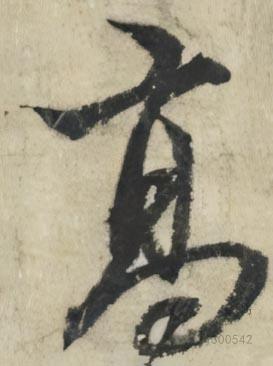 高
300542